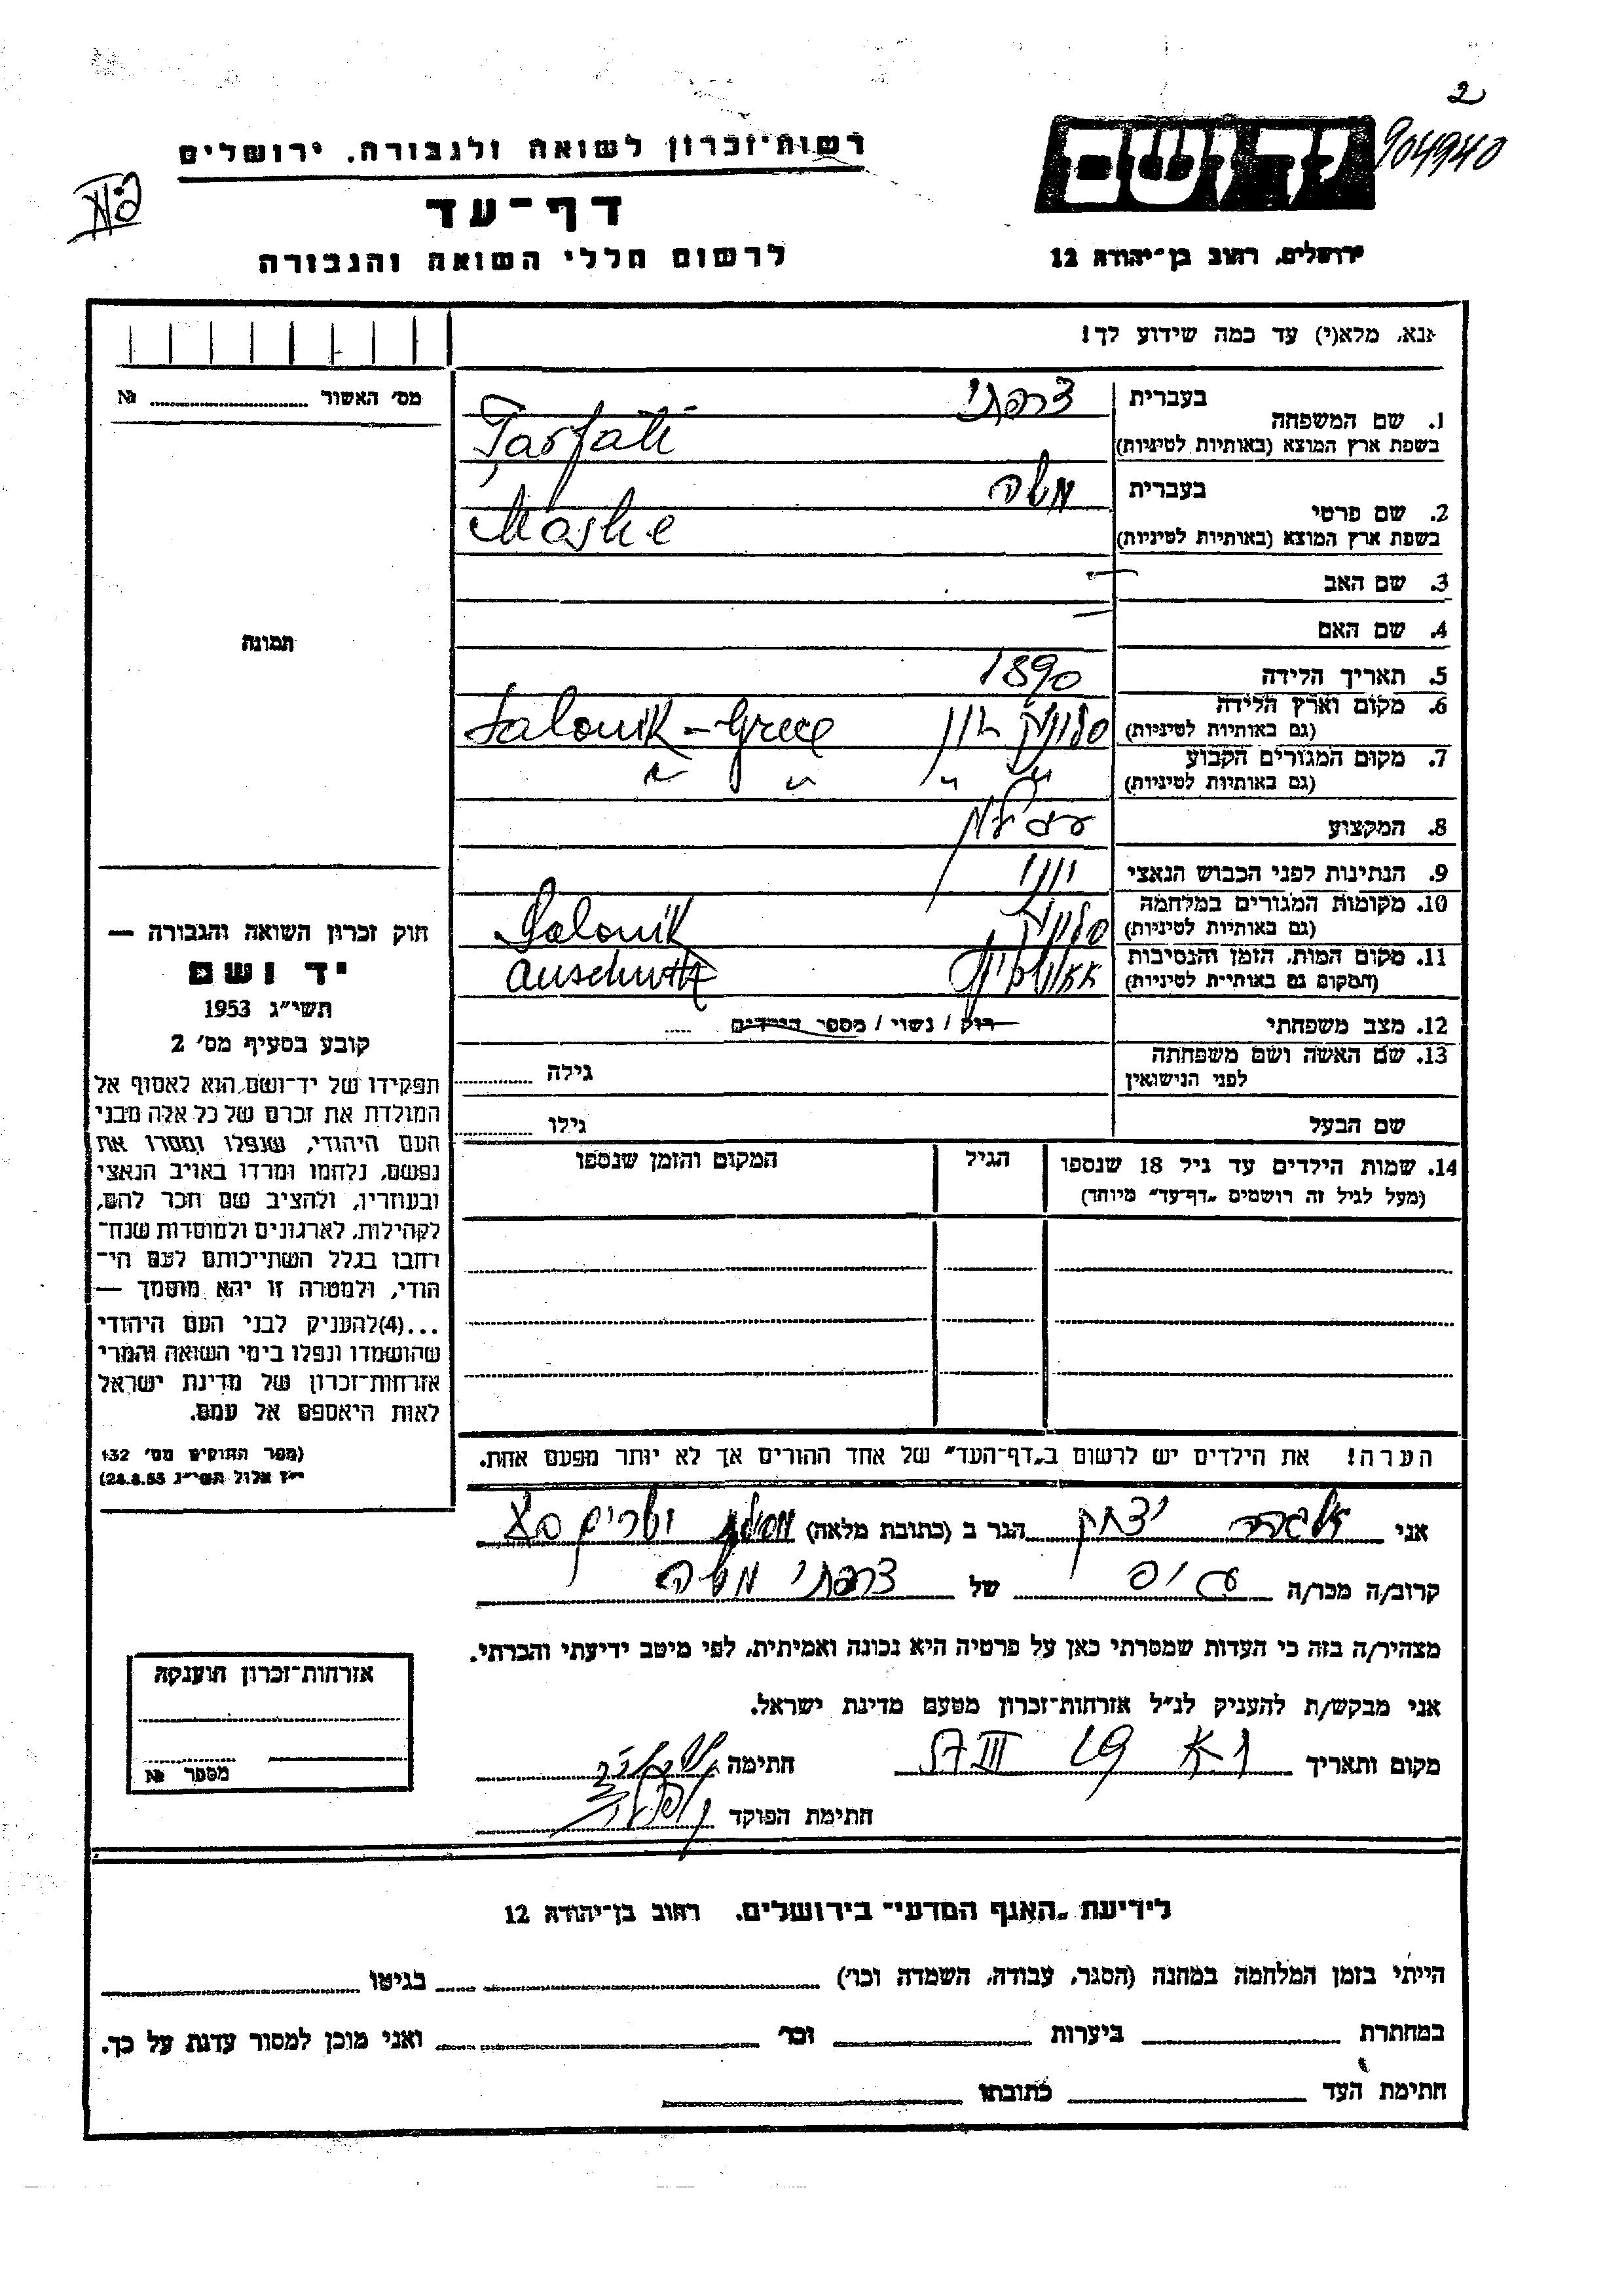 2
904940
יד ושם
ירושלים, רחוב בן־יהודה 12
רשות־זכרון לשואה ולגבורה, ירושלים
דף־עד
לרשום חללי השואה והגבורה
אנא, מלא(י) עד כמה שידוע לך!
מס׳ האשור № 
1. שם המשפחה בעברית צרפתי
בשפת ארץ המוצא (באותיות לטיניות) Tarfati
2. שם פרטי בעברית משה
בשפת ארץ המוצא (באותיות לטיניות) Moshe
3. שם האב —
4. שם האם —
5. תאריך הלידה 1890
6. מקום וארץ הלידה (גם באותיות לטיניות) סלוניק יוון Salonik - Grece
7. מקום המגורים הקבוע (גם באותיות לטיניות) " " " "
8. המקצוע
9. הנתינות לפני הכבוש הנאצי יווני
10. מקומות המגורים במלחמה (גם באותיות לטיניות) סלוניק Salonik
11. מקום המות, הזמן והנסיבות (המקום גם באותיות לטיניות) אאושוויץ Auschwitz
12. מצב משפחתי רווק / נשוי / מספר הילדים
13. שם האשה ושם משפחתה לפני הנישואין גילה
שם הבעל גילו
14. שמות הילדים עד גיל 18 שנספו הגיל המקום והזמן שנספו
(מעל לגיל זה רושמים „דף־עד" מיוחד)
הערה! את הילדים יש לרשום ב„דף־העד" של אחד ההורים אך לא יותר מפעם אחת.
תמונה
חוק זכרון השואה והגבורה —
יד ושם
תשי״ג 1953
קובע בסעיף מס׳ 2
תפקידו של יד־ושם הוא לאסוף אל
המולדת את זכרם של כל אלה מבני
העם היהודי, שנפלו ומסרו את
נפשם, נלחמו ומרדו באויב הנאצי
ובעוזריו, ולהציב שם וזכר להם,
לקהילות, לארגונים ולמוסדות שנח־
רבו בגלל השתייכותם לעם הי־
הודי, ולמטרה זו יהא מוסמך —
...(4)להעניק לבני העם היהודי
שהושמדו ונפלו בימי השואה והמרי
אזרחות־זכרון של מדינת ישראל
לאות היאספם אל עמם.
(ספר החוקים מס׳ 132
י״ז אלול תשי״ג 28.8.53)
אני יצחק הגר ב (כתובת מלאה)
קרוב/ה מכר/ה של צרפתי משה
מצהיר/ה בזה כי העדות שמסרתי כאן על פרטיה היא נכונה ואמיתית, לפי מיטב ידיעתי והכרתי.
אני מבקש/ת להעניק לנ״ל אזרחות־זכרון מטעם מדינת ישראל.
מקום ותאריך חתימה
חתימת הפוקד
אזרחות־זכרון הוענקה
מספר №
לידיעת „האגף המדעי" בירושלים, רחוב בן־יהודה 12
הייתי בזמן המלחמה במחנה (הסגר, עבודה, השמדה וכו׳) בגיטו
במחתרת ביערות וכו׳ ואני מוכן למסור עדות על כך.
חתימת העד כתובתו